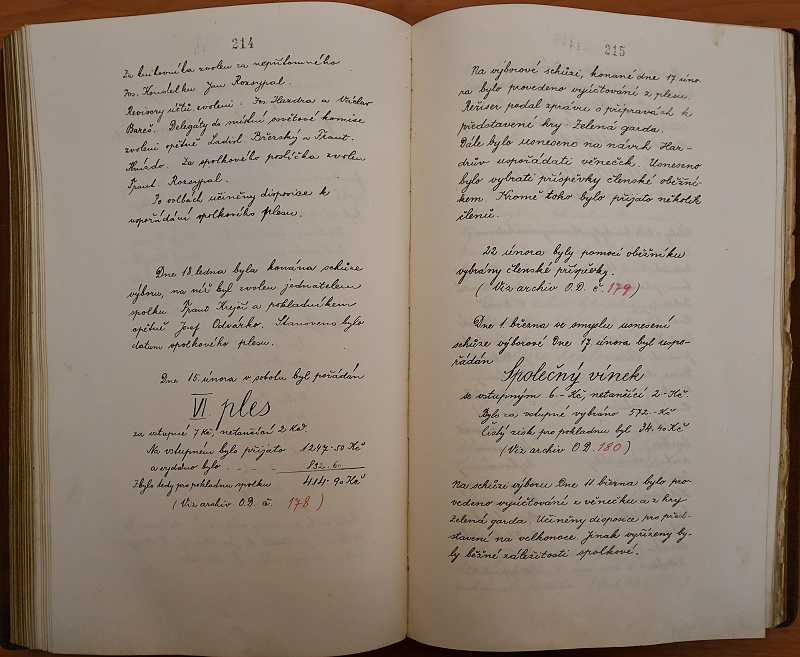 214
Za knihovníka zvolen za nepřítomného
Jos. Koudelku Jan Rozsypal.
Revisory účtů zvoleni: Jos. Hazdra a Václav
Bareš. Delegáty do místní osvětové komise
zvoleni opětně Ladisl. Březský a Frant.
Hnízdo. Za spolkového poslíčka zvolen
Frant. Rozsypal.
Po volbách učiněny disposice k
uspořádání spolkového plesu.
Dne 18. ledna byla konána schůze
výboru, na níž byl zvolen jednatelem
spolku Frant Krejčí a pokladníkem
opětně Josef Odvárko. Stanoveno bylo
datum spolkového plesu.
Dne 15. února v sobotu byl pořádán
VI ples
za vstupné 7 Kč, netančící 2 Kč.
Na vstupném bylo přijato 1247·50 Kč
a vydáno bylo 832·60
Zbylo tedy pro pokladnu spolku 414·90 Kč
(Viz archiv O.D. č. 178)
215
Na výborové schůzi, konané dne 17 úno-
ra bylo provedeno vyúčtování z plesu.
Režiser podal zprávu o přípravách k
představení hry Zelená garda.
Dále bylo usneseno na návrh Haz-
drův uspořádati věneček. Usneseno
bylo vybrati příspěvky členské oběžní-
kem. Kromě toho bylo přijato několik
členů.
22 února byly pomocí oběžníku
vybrány členské příspěvky.
(Viz archiv O.D. č. 179)
Dne 1. března ve smyslu usnesení
schůze výborové Dne 17 února byl uspo-
řádán
Společný vínek
se vstupným 6.- Kč, netančící 2-Kč.
Bylo za vstupné vybráno 572.-Kč
Čistý zisk pro pokladnu byl 34.40 Kč
(Viz archiv O.D. 180)
Na schůzi výboru Dne 11 března bylo pro-
vedeno vyúčtování z věnečku a z hry
Zelená garda. Učiněny desposice pro před-
stavení na velkonoce. Jinak vyřízeny by-
ly běžné záležitosti spolkové.